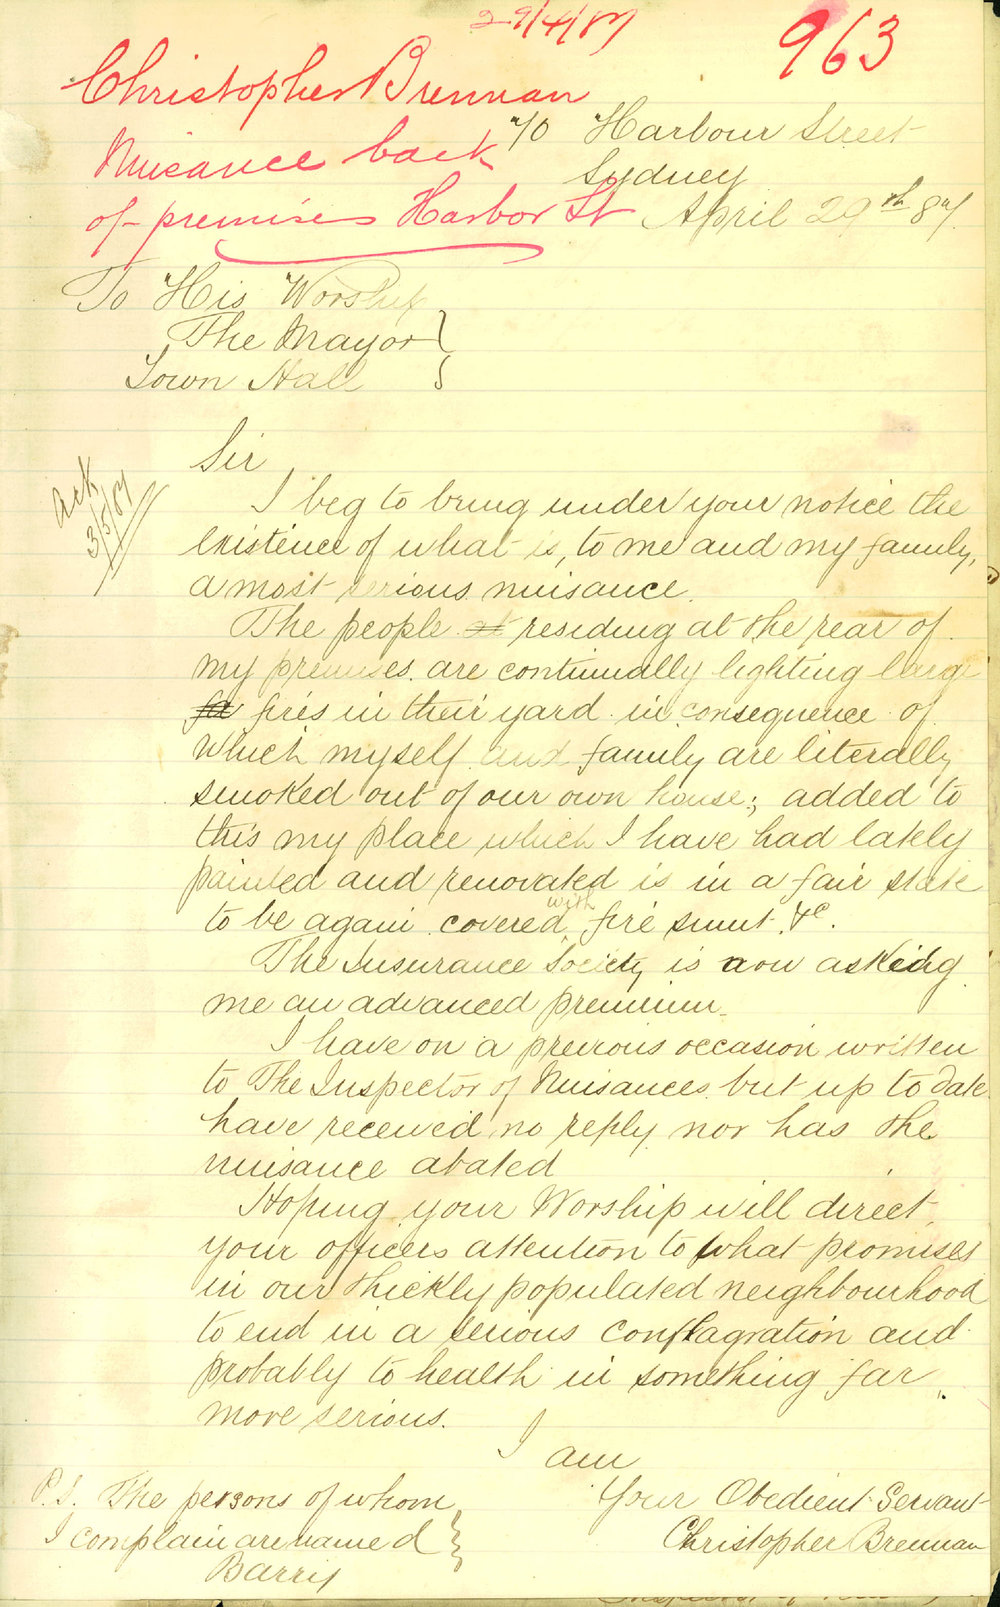 29/4/87
963
Christopher Brennan
Nuisance back
of premises Harbor St
70 Harbour Street
Sydney
April 29th 87.
To His Worship
The Mayor
Town Hall
Ack
3/5/87
Sir
I beg to bring under your notice the
existence of what is, to me and my family,
a most serious nuisance.
The people at residing at the rear of
my premises are continually lighting large
fires in their yard in consequence of
which myself and family are literally
smoked out of our own house; added to
this my place which I have had lately
painted and renovated is in a fair state
to be again covered with fire smut &c.
The Insurance Society is now asking
me an advanced premium.
I have on a previous occasion written
to The Inspector of Nuisances but up to date
have received no reply nor has the
nuisance abated
Hoping your Worship will direct
your officers attention to what promises
in our thickly populated neighbourhood
to end in a serious conflagration and
probably to health in something far
more serious.
I am
Your Obedient Servant
Christopher Brennan
P.S. The persons of whom
I complain are named
Barry